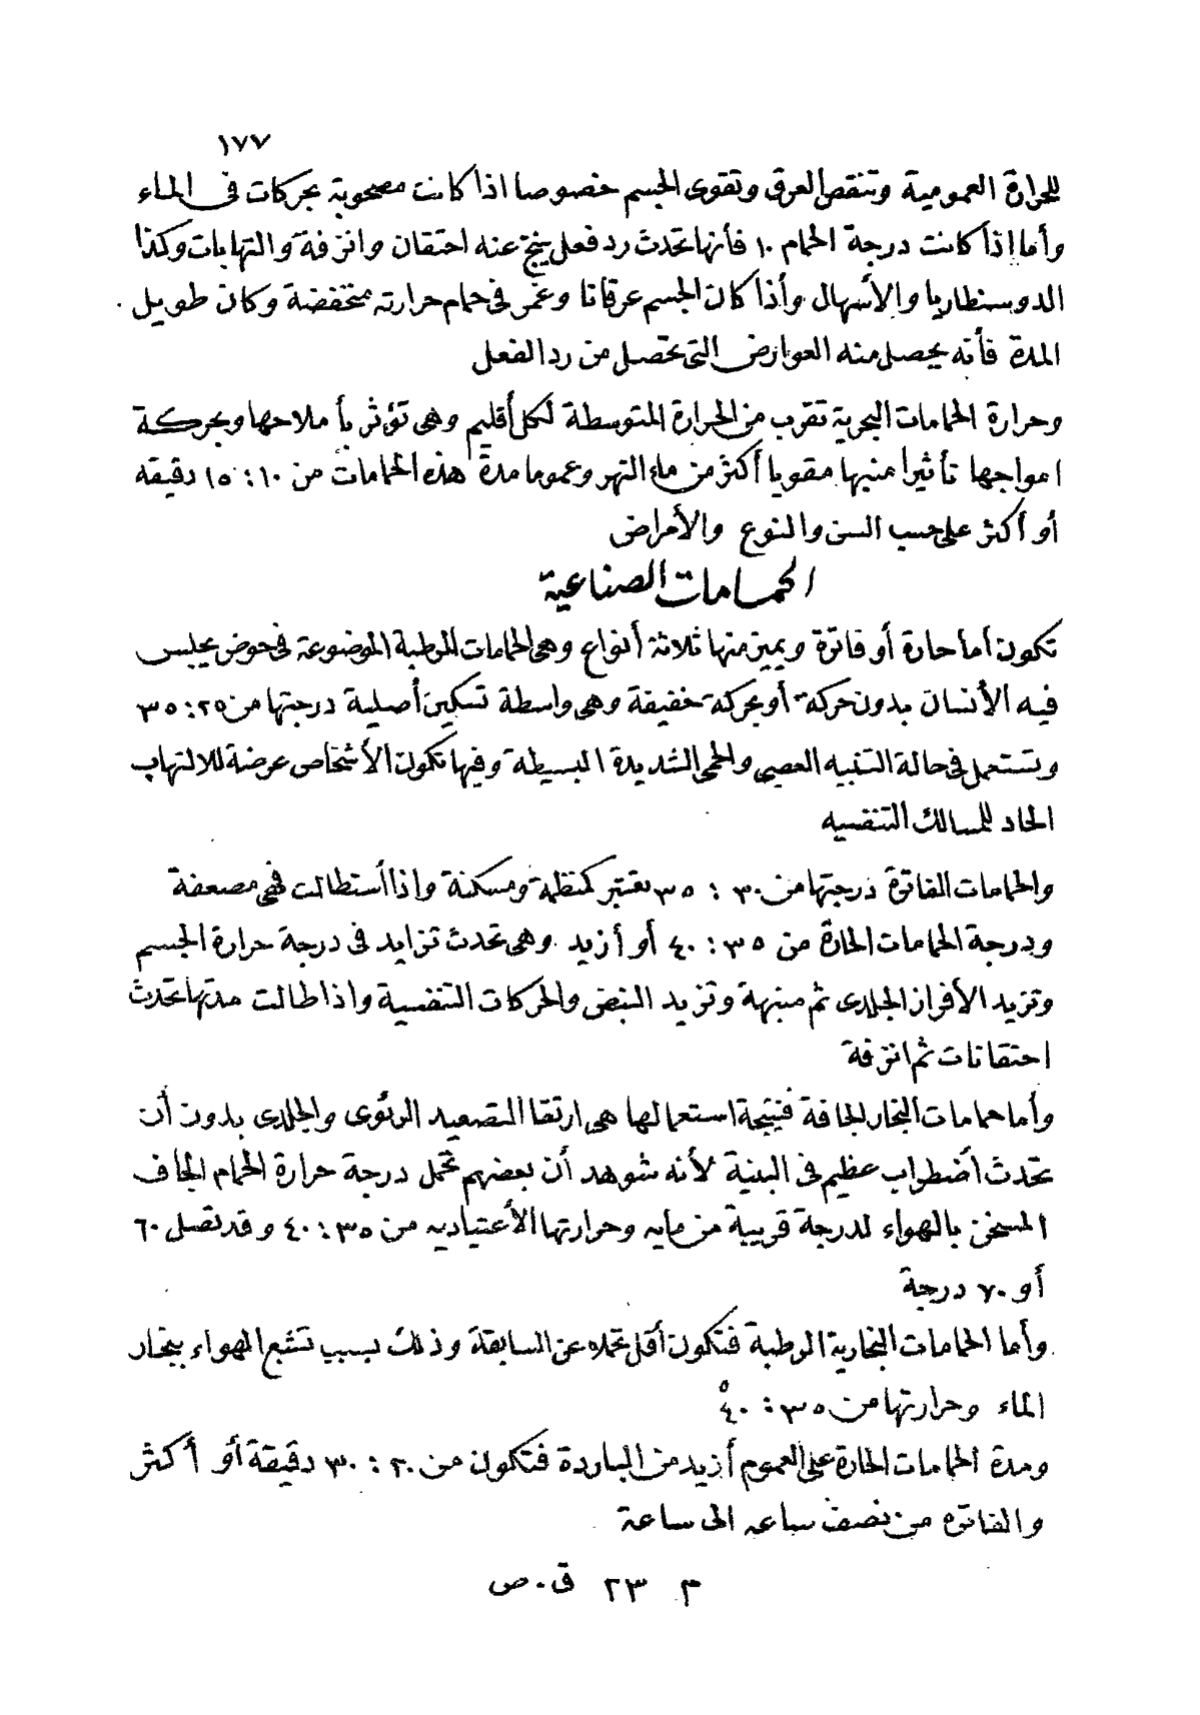 ١٧٧
للحرارة العمومية وتنقص العرق وتقوى الجسم خصوصا اذا كانت مصحوبة بحركات فى الماء
وأما اذا كانت درجة الحمام ١٠ فأنها تحدث رد فعل ينتج عنه احتقان وانزفة والتهابات وكذا
الدوسنطاريا والأسهال وأذا كان الجسم عرقانا وغمر فى حمام حرارته منخفضة وكان طويل
المدة فأنه يحصل منه العوارض التى تحصل من رد الفعل
وحرارة الحمامات البحرية تقرب من الحرارة المتوسطة لكل أقليم وهى تؤثر بأملاحها وبحركة
امواجها تأثيرا منبها مقويا أكثر من ماء النهر وعموما مدة هذه الحمامات من ١٠ : ١٥ دقيقة
أو أكثر على حسب السن والنوع والأمراض
الحمامات الصناعية
تكون أما حارة أو فاترة ويميز منها ثلاثة أنواع وهى الحمامات الرطبة الموضوعة فى حوض يجلس
فيه الأنسان بدون حركة أو بحركة خفيفة وهى واسطة تسكين أصلية درجتها من ٢٥ : ٣٥
وتستعمل فى حالة التنبيه العصبى والحمى الشديدة البسيطة وفيها تكون الأشخاص عرضة للالتهاب
الحاد للمسالك التنفسيه
والحمامات الفاترة درجتها من ٣٠ : ٣٥ تعتبر كمنظمة ومسكنة واذا أستطالت فهى مضعفة
ودرجة الحمامات الحارة من ٣٥ : ٤٠ أو أزيد وهى تحدث تزايد فى درجة حرارة الجسم
وتزيد الأفراز الجلدى ثم منبهة وتزيد النبض والحركات التنفسية واذا طالت مدتها تحدث
احتقانات ثم انزفة
وأما حمامات البخار الجافة فنتيجة استعمالها هى ارتقا التصعيد الرئوى والجلدى بدون أن
تحدث أضطراب عظيم فى البنية لأنه شوهد أن بعضهم تحمل درجة حرارة الحمام الجاف
المسخن بالهواء لدرجة قريبة من مايه وحرارتها الأعتياديه من ٣٥ : ٤٠ وقد تصل ٦٠
أو ٧٠ درجة
وأما الحمامات البخارية الرطبة فتكون أقل تحمله عن السابقة وذلك بسبب تشبع الهواء ببخار
الماء وحرارتها من ٣٥ : ٤٠°
ومدة الحمامات الحارة على العموم أزيد من الباردة فتكون من ٢٠ : ٣٠ دقيقة أو أكثر
والفاتره من نصف ساعه الى ساعة
م ٢٣ ق . ص